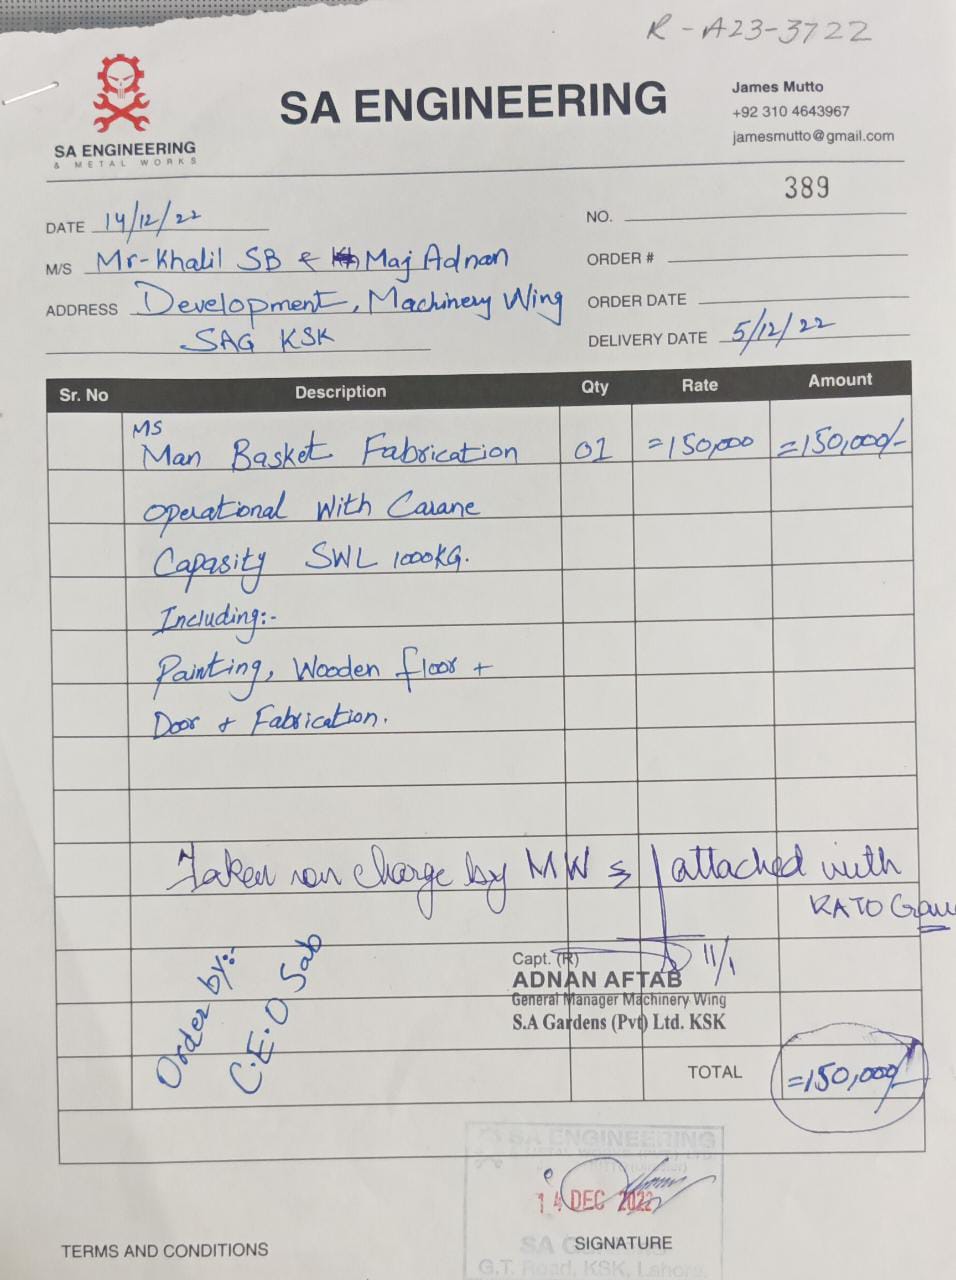 R - A23-3722
SA ENGINEERING
& METAL WORKS
SA ENGINEERING
James Mutto
+92 310 4643967
jamesmutto@gmail.com
389
DATE 14/12/22
NO.
M/S Mr-Khalil SB & Maj Adnan
ORDER #
ADDRESS Development, Machinery Wing
ORDER DATE
SAG KSK
DELIVERY DATE 5/12/22
Sr. No Description Qty Rate Amount
MS
Man Basket Fabrication 01 =150,000 =150,000/-
Operational With Carane
Capasity SWL 1000KG.
Including:-
Painting, Wooden floor +
Door + Fabrication.
Taken on charge by MW & attached with
KATO Crane
Order by:-
C.E.O Sab
11/1
Capt. (R)
ADNAN AFTAB
General Manager Machinery Wing
S.A Gardens (Pvt) Ltd. KSK
TOTAL =150,000/-
SA ENGINEERING
14 DEC 2022
TERMS AND CONDITIONS
SIGNATURE
G.T. Road, KSK, Lahore.